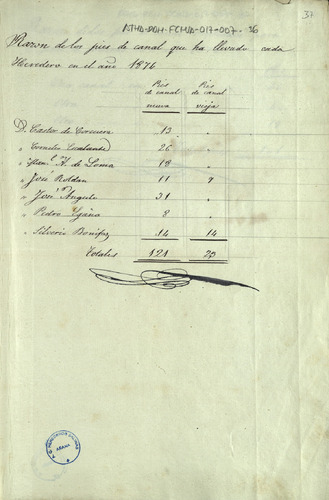 ATHA-DAH-FCMA-017-007-36
37
Razon de los pies de canal que ha llevado cada
Heredero en el año 1876
Pies de canal nueva
Pies de canal vieja
D. Castor de Corcuera 13 "
" Cornelio 26 "
" H. de Loma 18 "
" José Roldan 11 9
" José Mª Angulo 31 "
" Pedro Egaña 8 "
" Silverio Bonifaz 14 14
Totales 121 23
AÑANA